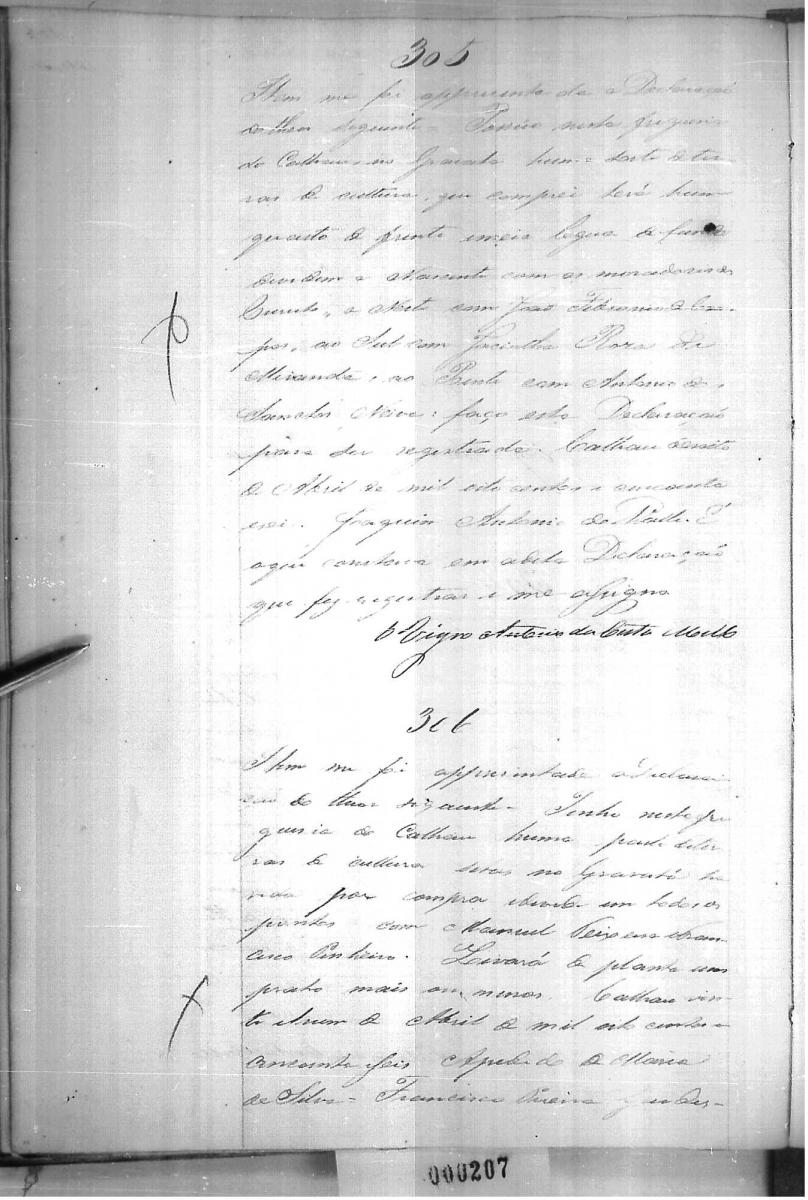 305
Item me foi appresenta da a Declaraçaõ
do theor seguinte = Possúo nesta freguesia
do Calhau no Gravatá huma sorte de ter-
ras de cultura, que comprei terá hum
quarto de frente e meia legua de fundo
dividem o Nascente com os moradores do
, o Norte com João de Cam-
pos, ao Sul com Jacintha Roza de
Miranda, ao Poente com Antonio dos
Sanctos Neive: faço esta Declaração
para ser registrada. Calhau desoito
de Abril de mil oito centos e cincoenta
e seis. Joaquim Antonio do Valle. É
o que constava em a dita Declaração
que fez registrar e me assigno
O Vigro Antonio da Costa Mello
306
Item me foi appresentada a Declara-
ção do theor seguinte = Tenho nesta fre
guesia do Calhau huma parte de ter-
ras de cultura citas no Gravatá ha-
vida por compra e divide em todos os
pontos com Manuel Teixeira e Fran-
cisco Pinheiro. Levará de planta um
prato mais ou menos. Calhau vin-
te e hum de Abril de mil oito centos e
cincoenta e seis A pedido de Maria
da Silva = Francisco
000207